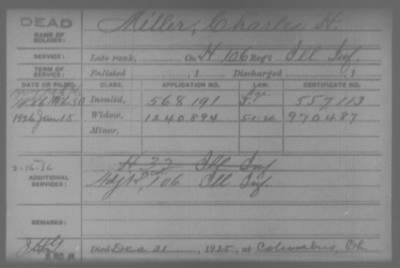 DEAD
NAME OF SOLDIER: Miller, Charles H.
SERVICE: Late rank, Co. H 106 Reg't Ill Inf.
TERM OF SERVICE: Enlisted , 1 Discharged , 1
DATE OF FILING. CLASS. APPLICATION NO. LAW. CERTIFICATE NO.
Invalid, 568191 557113
1926 Jan 15 Widow, 1240894 970487
Minor,
2-16-26 H 77 Ill Inf
ADDITIONAL SERVICES: 106 Ill Inf.
REMARKS:
Died Dec 21, 1925, at Columbus,